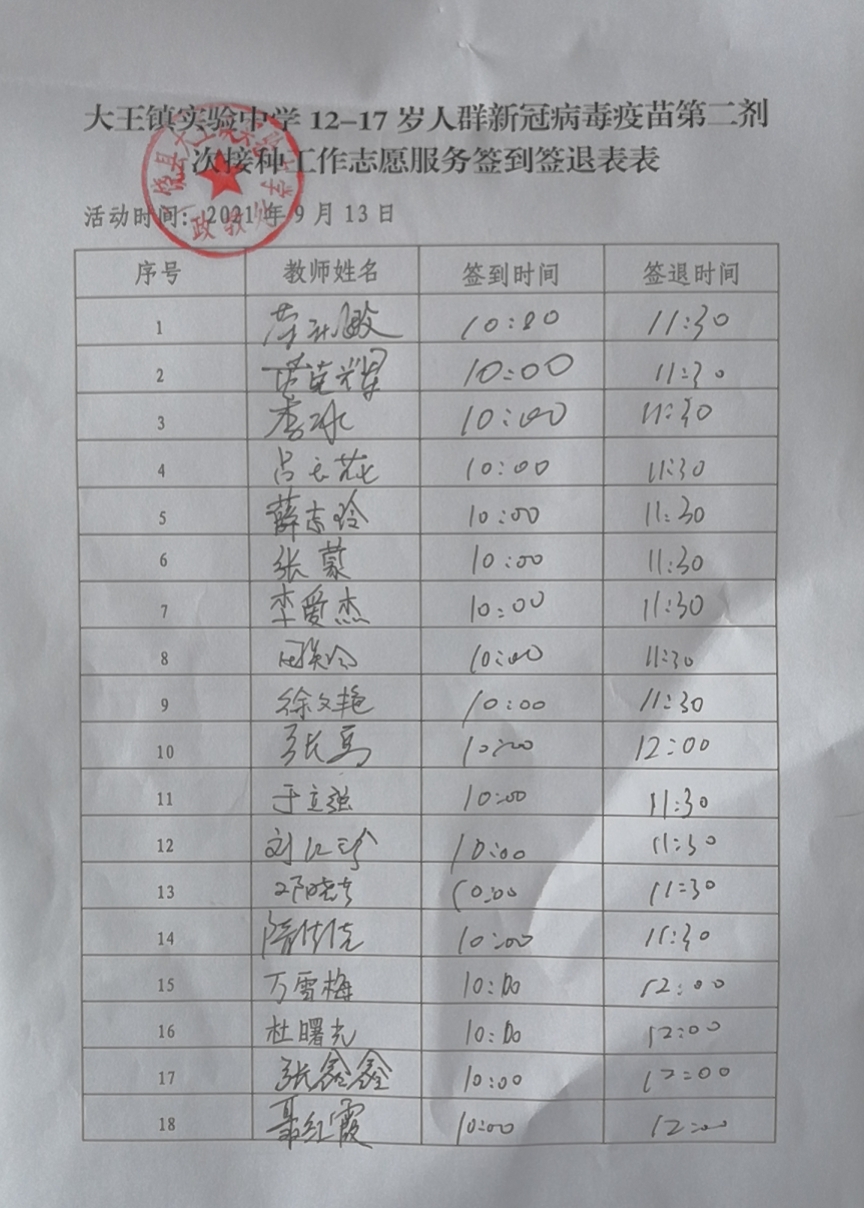 大王镇实验中学12-17岁人群新冠病毒疫苗第二剂
次接种工作志愿服务签到签退表表
活动时间：2021年9月13日
序号 教师姓名 签到时间 签退时间
1 10:00 11:30
2 10:00 11:30
3 李冰 10:00 11:30
4 吕 花 10:00 11:30
5 薛志玲 10:00 11:30
6 张蒙 10:00 11:30
7 李爱杰 10:00 11:30
8 10:00 11:30
9 徐文艳 10:00 11:30
10 张磊 10:00 12:00
11 于立强 10:00 11:30
12 刘红珍 10:00 11:30
13 邓晓 10:00 11:30
14 隋 10:00 11:30
15 万雪梅 10:00 12:00
16 杜曙光 10:00 12:00
17 张鑫鑫 10:00 12:00
18 聂红霞 10:00 12:00